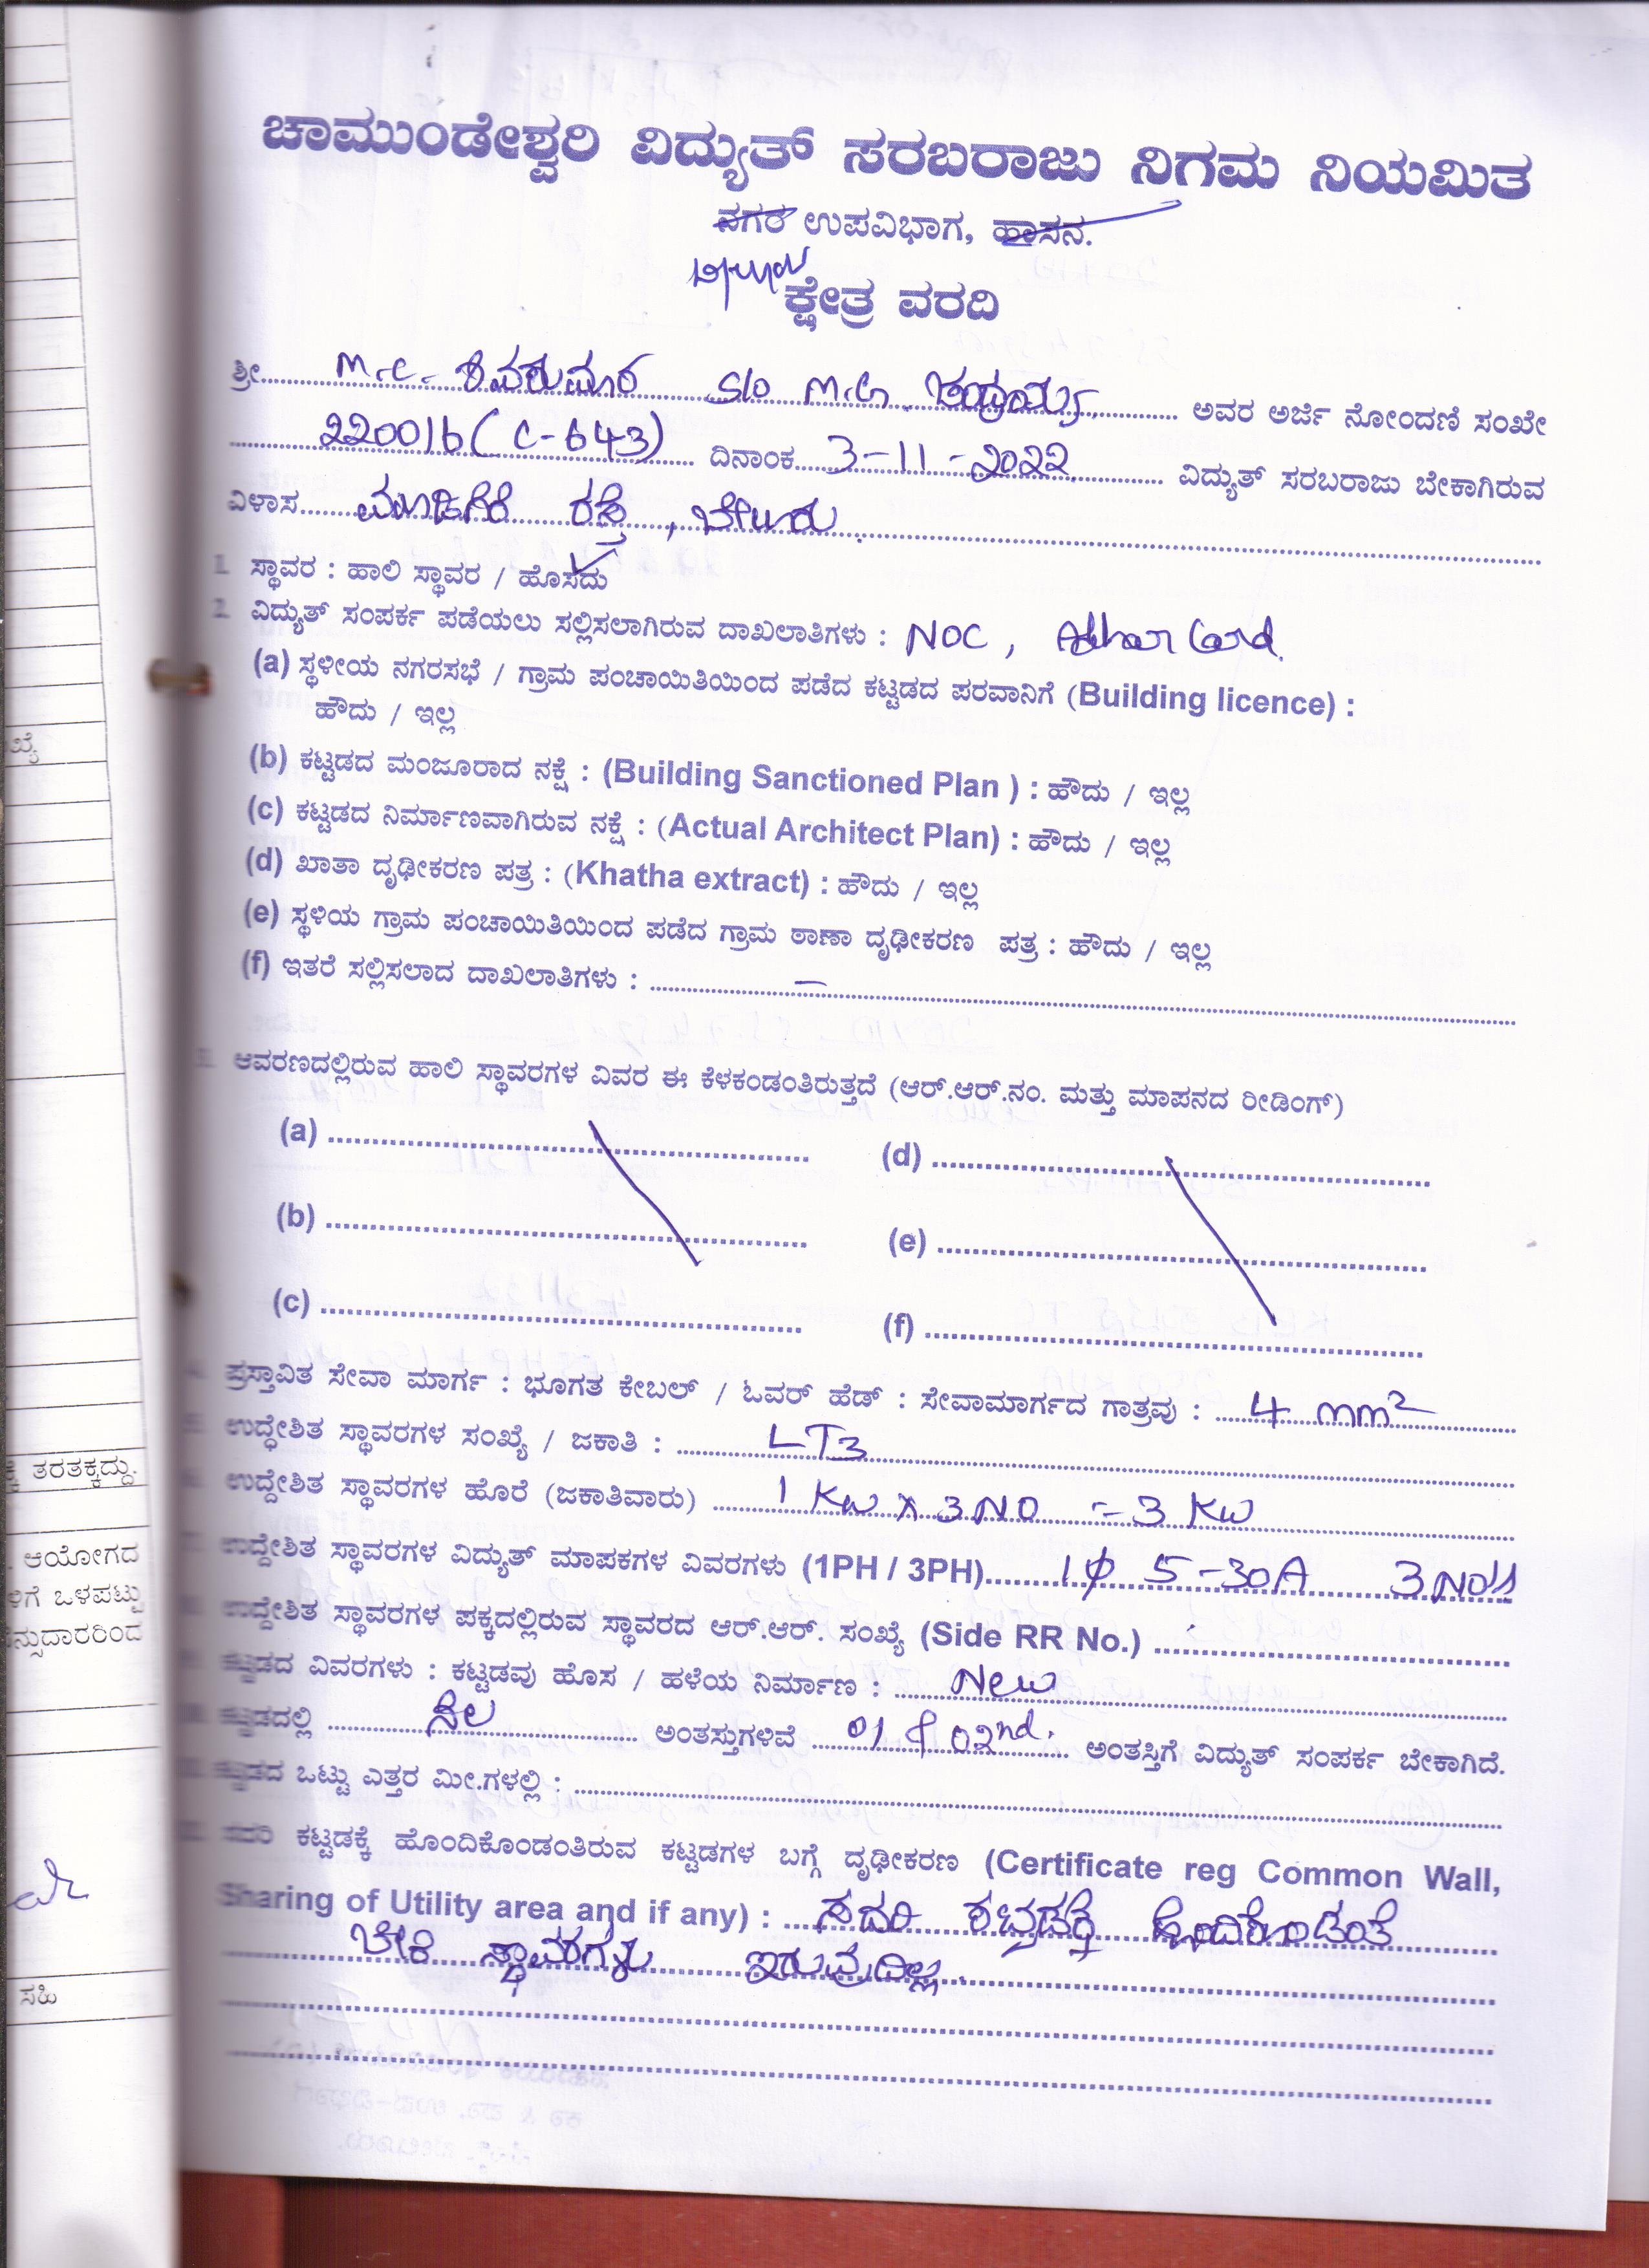 ಚಾಮುಂಡೇಶ್ವರಿ ವಿದ್ಯುತ್ ಸರಬರಾಜು ನಿಗಮ ನಿಯಮಿತ
ನಗರ ಉಪವಿಭಾಗ, ಹಾಸನ.
ಕ್ಷೇತ್ರ ವರದಿ
ಶ್ರೀ M.C. ಶಿವಕುಮಾರ S/o M.G. ಚಂದ್ರಯ್ಯ ಅವರ ಅರ್ಜಿ ನೋಂದಣಿ ಸಂಖೇ
220016 (C-643) ದಿನಾಂಕ 3-11-2022 ವಿದ್ಯುತ್ ಸರಬರಾಜು ಬೇಕಾಗಿರುವ
ವಿಳಾಸ ಮೂಡಿಗೆರೆ ರಸ್ತೆ, ಬೇಲೂರು.
1. ಸ್ಥಾವರ : ಹಾಲಿ ಸ್ಥಾವರ / ಹೊಸದು
2. ವಿದ್ಯುತ್ ಸಂಪರ್ಕ ಪಡೆಯಲು ಸಲ್ಲಿಸಲಾಗಿರುವ ದಾಖಲಾತಿಗಳು : NOC, Adhar Card.
(a) ಸ್ಥಳೀಯ ನಗರಸಭೆ / ಗ್ರಾಮ ಪಂಚಾಯಿತಿಯಿಂದ ಪಡೆದ ಕಟ್ಟಡದ ಪರವಾನಿಗೆ (Building licence) :
ಹೌದು / ಇಲ್ಲ
(b) ಕಟ್ಟಡದ ಮಂಜೂರಾದ ನಕ್ಷೆ : (Building Sanctioned Plan ) : ಹೌದು / ಇಲ್ಲ
(c) ಕಟ್ಟಡದ ನಿರ್ಮಾಣವಾಗಿರುವ ನಕ್ಷೆ : (Actual Architect Plan) : ಹೌದು / ಇಲ್ಲ
(d) ಖಾತಾ ದೃಢೀಕರಣ ಪತ್ರ : (Khatha extract) : ಹೌದು / ಇಲ್ಲ
(e) ಸ್ಥಳಿಯ ಗ್ರಾಮ ಪಂಚಾಯಿತಿಯಿಂದ ಪಡೆದ ಗ್ರಾಮ ಠಾಣಾ ದೃಢೀಕರಣ ಪತ್ರ : ಹೌದು / ಇಲ್ಲ
(f) ಇತರೆ ಸಲ್ಲಿಸಲಾದ ದಾಖಲಾತಿಗಳು : –
ಆವರಣದಲ್ಲಿರುವ ಹಾಲಿ ಸ್ಥಾವರಗಳ ವಿವರ ಈ ಕೆಳಕಂಡಂತಿರುತ್ತದೆ (ಆರ್.ಆರ್.ನಂ. ಮತ್ತು ಮಾಪನದ ರೀಡಿಂಗ್)
(a) (d)
(b) (e)
(c) (f)
ಪ್ರಸ್ತಾವಿತ ಸೇವಾ ಮಾರ್ಗ : ಭೂಗತ ಕೇಬಲ್ / ಓವರ್ ಹೆಡ್ : ಸೇವಾಮಾರ್ಗದ ಗಾತ್ರವು : 4 mm²
ಉದ್ದೇಶಿತ ಸ್ಥಾವರಗಳ ಸಂಖ್ಯೆ / ಜಕಾತಿ : LT3
ಉದ್ದೇಶಿತ ಸ್ಥಾವರಗಳ ಹೊರೆ (ಜಕಾತಿವಾರು) 1 KW X 3 NO = 3 KW
ಉದ್ದೇಶಿತ ಸ್ಥಾವರಗಳ ವಿದ್ಯುತ್ ಮಾಪಕಗಳ ವಿವರಗಳು (1PH / 3PH) 1φ 5-30A 3 NO's
ಉದ್ದೇಶಿತ ಸ್ಥಾವರಗಳ ಪಕ್ಕದಲ್ಲಿರುವ ಸ್ಥಾವರದ ಆರ್.ಆರ್. ಸಂಖ್ಯೆ (Side RR No.)
ಕಟ್ಟಡದ ವಿವರಗಳು : ಕಟ್ಟಡವು ಹೊಸ / ಹಳೆಯ ನಿರ್ಮಾಣ : New
ಕಟ್ಟಡದಲ್ಲಿ ನೆಲ ಅಂತಸ್ತುಗಳಿವೆ 01 & 02nd. ಅಂತಸ್ತಿಗೆ ವಿದ್ಯುತ್ ಸಂಪರ್ಕ ಬೇಕಾಗಿದೆ.
ಕಟ್ಟಡದ ಒಟ್ಟು ಎತ್ತರ ಮೀ.ಗಳಲ್ಲಿ :
ಸದರಿ ಕಟ್ಟಡಕ್ಕೆ ಹೊಂದಿಕೊಂಡಂತಿರುವ ಕಟ್ಟಡಗಳ ಬಗ್ಗೆ ದೃಢೀಕರಣ (Certificate reg Common Wall,
Sharing of Utility area and if any) : ಸದರಿ ಕಟ್ಟಡಕ್ಕೆ ಹೊಂದಿಕೊಂಡಂತೆ
ಬೇರೆ ಸ್ಥಾವರಗಳು ಇರುವುದಿಲ್ಲ.
ಖ್ಯೆ
ತರತಕ್ಕದ್ದು.
ಆಯೋಗದ
ಳಿಗೆ ಒಳಪಟ್ಟು
ನ್ಸುದಾರರಿಂದ
ಸಹಿ